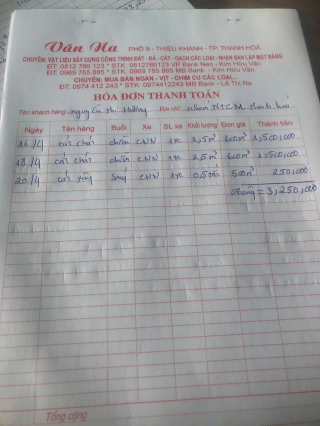 Văn Na
PHỐ 9 - THIỆU KHÁNH - TP. THANH HOÁ
CHUYÊN: VẬT LIỆU XÂY DỰNG CÔNG TRÌNH ĐẤT - ĐÁ - CÁT - GẠCH CÁC LOẠI - NHẬN SAN LẤP MẶT BẰNG
ĐT: 0812 786 123 * STK: 0812786123 VP Bank Neo - Kim Hữu Văn
ĐT: 0969 755 885 * STK: 0969 755 885 MB Bank - Kim Hữu Văn
CHUYÊN: MUA BÁN NGAN - VỊT - CHIM CU CÁC LOẠI...
ĐT: 0974 412 243 * STK: 0974412243 MB Bank - Lê Thị Na
HÓA ĐƠN THANH TOÁN
Tên khách hàng: nguyễn thị Hường Địa chỉ:
Ngày Tên hàng Buổi Xe SL xe Khối lượng Đơn giá Thành tiền
16/4 cát chát chiều CNN 1xe 2,5m³ 600m³ 1,500,000
18/4 cát chát chiều CNN 1xe 2,5m³ 600m³ 1,500,000
20/4 cát xây sáng CNN 1xe 0,5m³ 500m³ 250,000
= 3,250,000
Tổng cộng